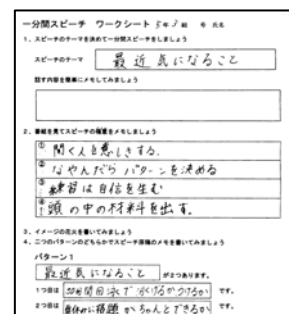 一分間スピーチ ワークシート 5年3組 号 氏名
1、スピーチのテーマを決めて一分間スピーチをしましょう
スピーチのテーマ 最近気になること
話す内容を簡単にメモしてみましょう
2、番組を見てスピーチの極意をメモしましょう
① 聞く人を意しきする。
② なやんだらパターンを決める
③ 練習は自信を生む
④ 頭の中の材料を出す。
3、イメージの花火を書いてみましょう
4、二つのパターンのどちらかでスピーチ原稿のメモを書いてみましょう
パターン1
最近気になること が2つあります。
1つ目は です。
2つ目は 夏休みに宿題がちゃんとできるか です。